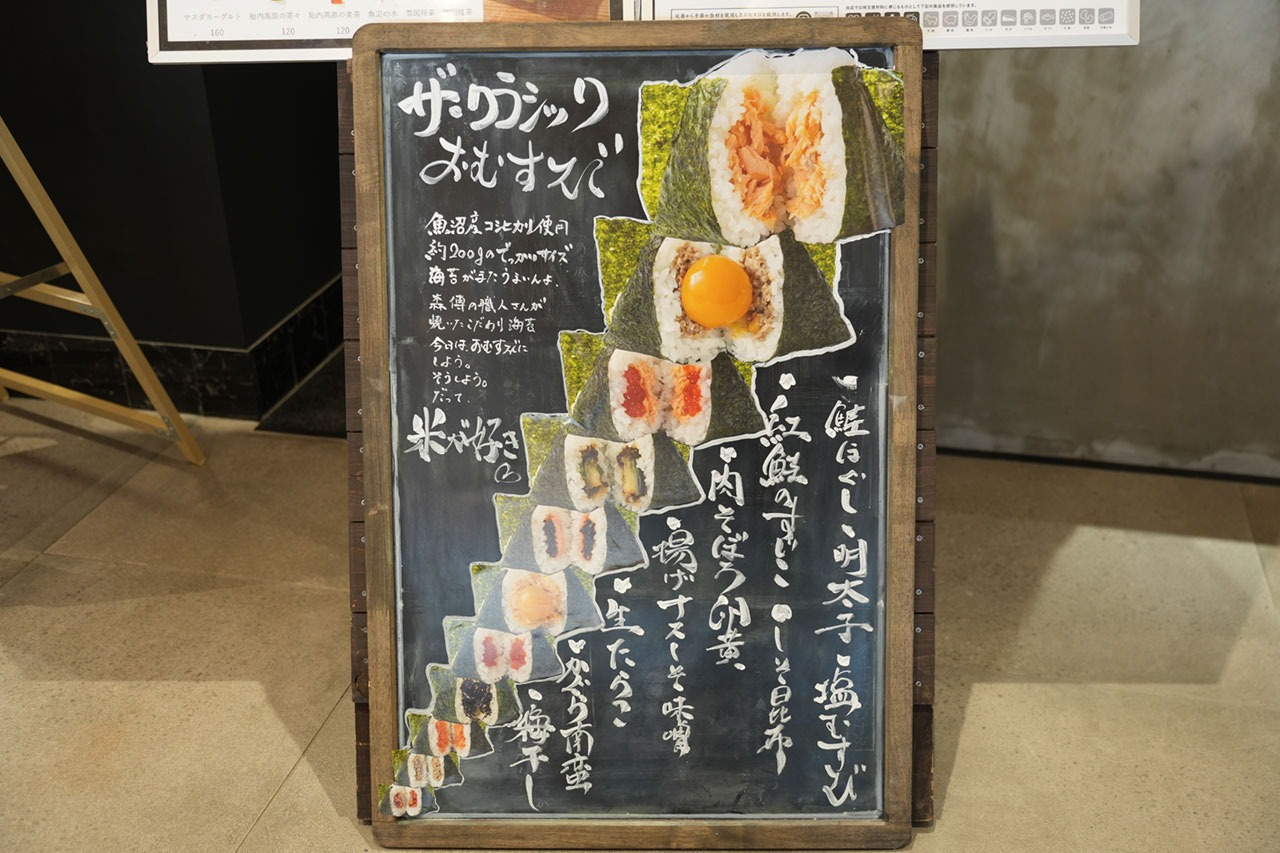 ヤスダヨーグルト 胎内高原の茶々 胎内高原の麦茶 魚沼の水 雪国緑茶 雪国紅茶
160 120 120
ザ・クラシック
おむすび
魚沼産コシヒカリ使用
約200gのでっかいサイズ
海苔がまたうまいんよ。
森傳の職人さんが
焼いたこだわり海苔
今日は、おむすびに
しよう。
そうしよう。
だって、
米が好き
鮭ほぐし・明太子・塩むすび
紅鮭のすじこ・しそ昆布
肉そぼろ卵黄
揚げナスしそ味噌
生たらこ
かぐら南蛮
梅干し